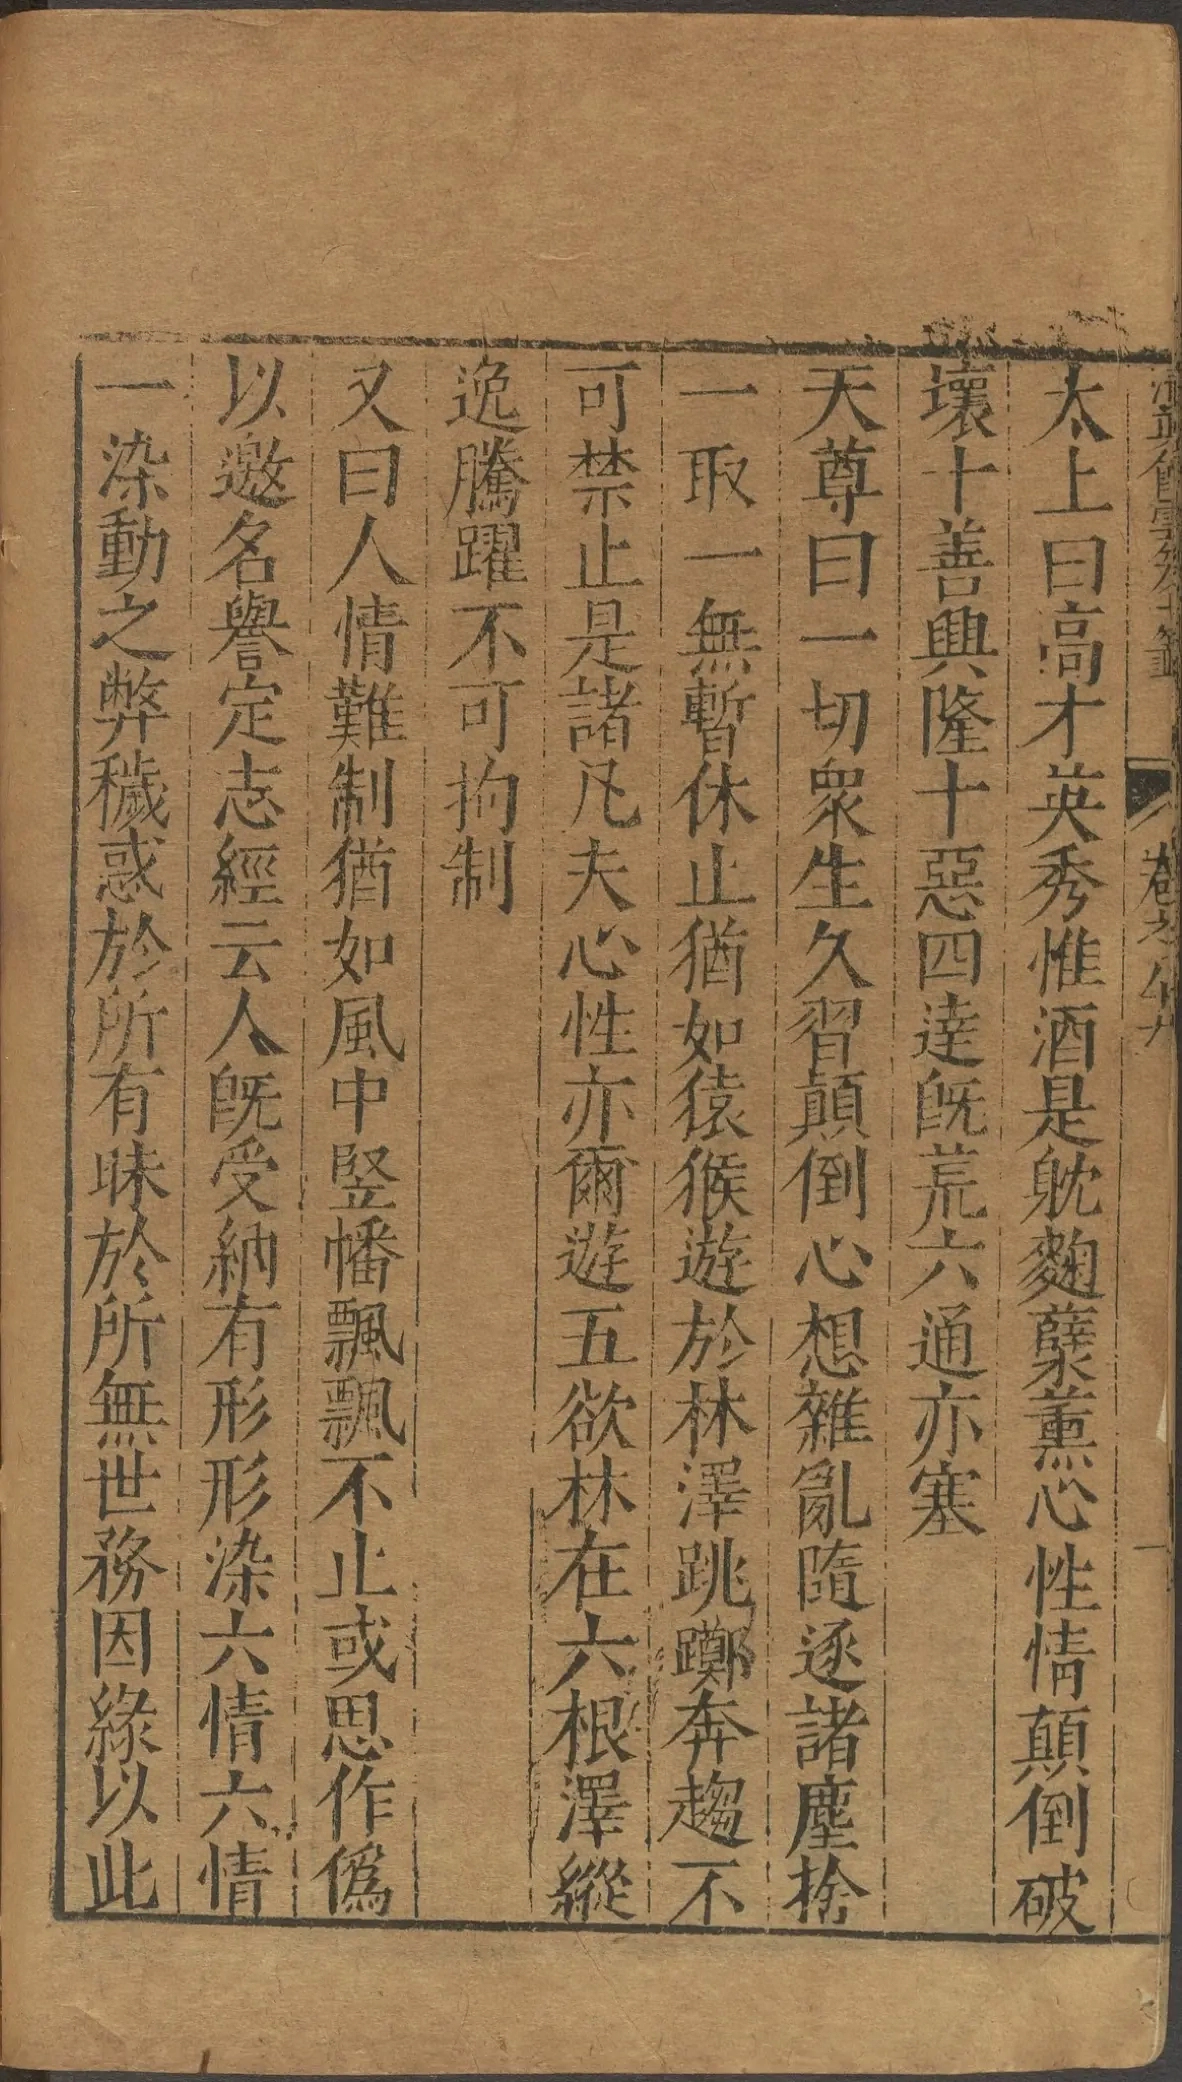 清真館雲笈七籤 卷之九十
太上曰高才英秀惟酒是躭麴櫱薰心性情顛倒破
壞十善興隆十惡四達旣荒六通亦塞
天尊曰一切衆生久習顛倒心想雜亂隨逐諸塵捨
一取一無暫休止猶如猿猴遊於林澤跳躑奔趨不
可禁止是諸凡夫心性亦爾遊五欲林在六根澤縱
逸騰躍不可拘制
又曰人情難制猶如風中竪幡飄飄不止或思作僞
以邀名譽定志經云人旣受納有形形染六情六情
一染動之弊穢惑於所有昧於所無世務因緣以此